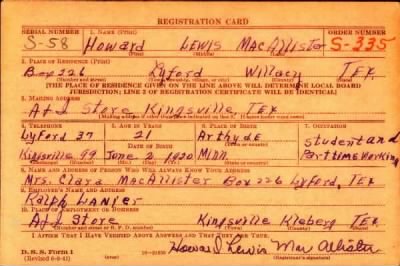 REGISTRATION CARD
SERIAL NUMBER 1. NAME (Print) ORDER NUMBER
S-58 Howard LEWIS MACALLISTER S-335
2. PLACE OF RESIDENCE (Print)
Box 226 Lyford Willacy TEX
[THE PLACE OF RESIDENCE GIVEN ON THE LINE ABOVE WILL DETERMINE LOCAL BOARD
JURISDICTION; LINE 2 OF REGISTRATION CERTIFICATE WILL BE IDENTICAL]
3. MAILING ADDRESS
Store Kingsville, TEX
[Mailing address if other than place indicated on line 2. If same insert word same]
4. TELEPHONE 5. AGE IN YEARS 6. PLACE OF BIRTH 7. OCCUPATION
Lyford 37 21 student and
DATE OF BIRTH
Kingsville 99 June 2 1920 MINN Part time Working
8. NAME AND ADDRESS OF PERSON WHO WILL ALWAYS KNOW YOUR ADDRESS
Mrs. Clara MacAllister Box 226 Lyford, Tex
9. EMPLOYER'S NAME AND ADDRESS
Ralph Lanier
10. PLACE OF EMPLOYMENT OR BUSINESS
Store Kingsville Kleberg TEX
I AFFIRM THAT I HAVE VERIFIED ABOVE ANSWERS AND THAT THEY ARE TRUE.
D. S. S. Form 1
(Revised 6-9-41)
Howard Lewis MacAllister